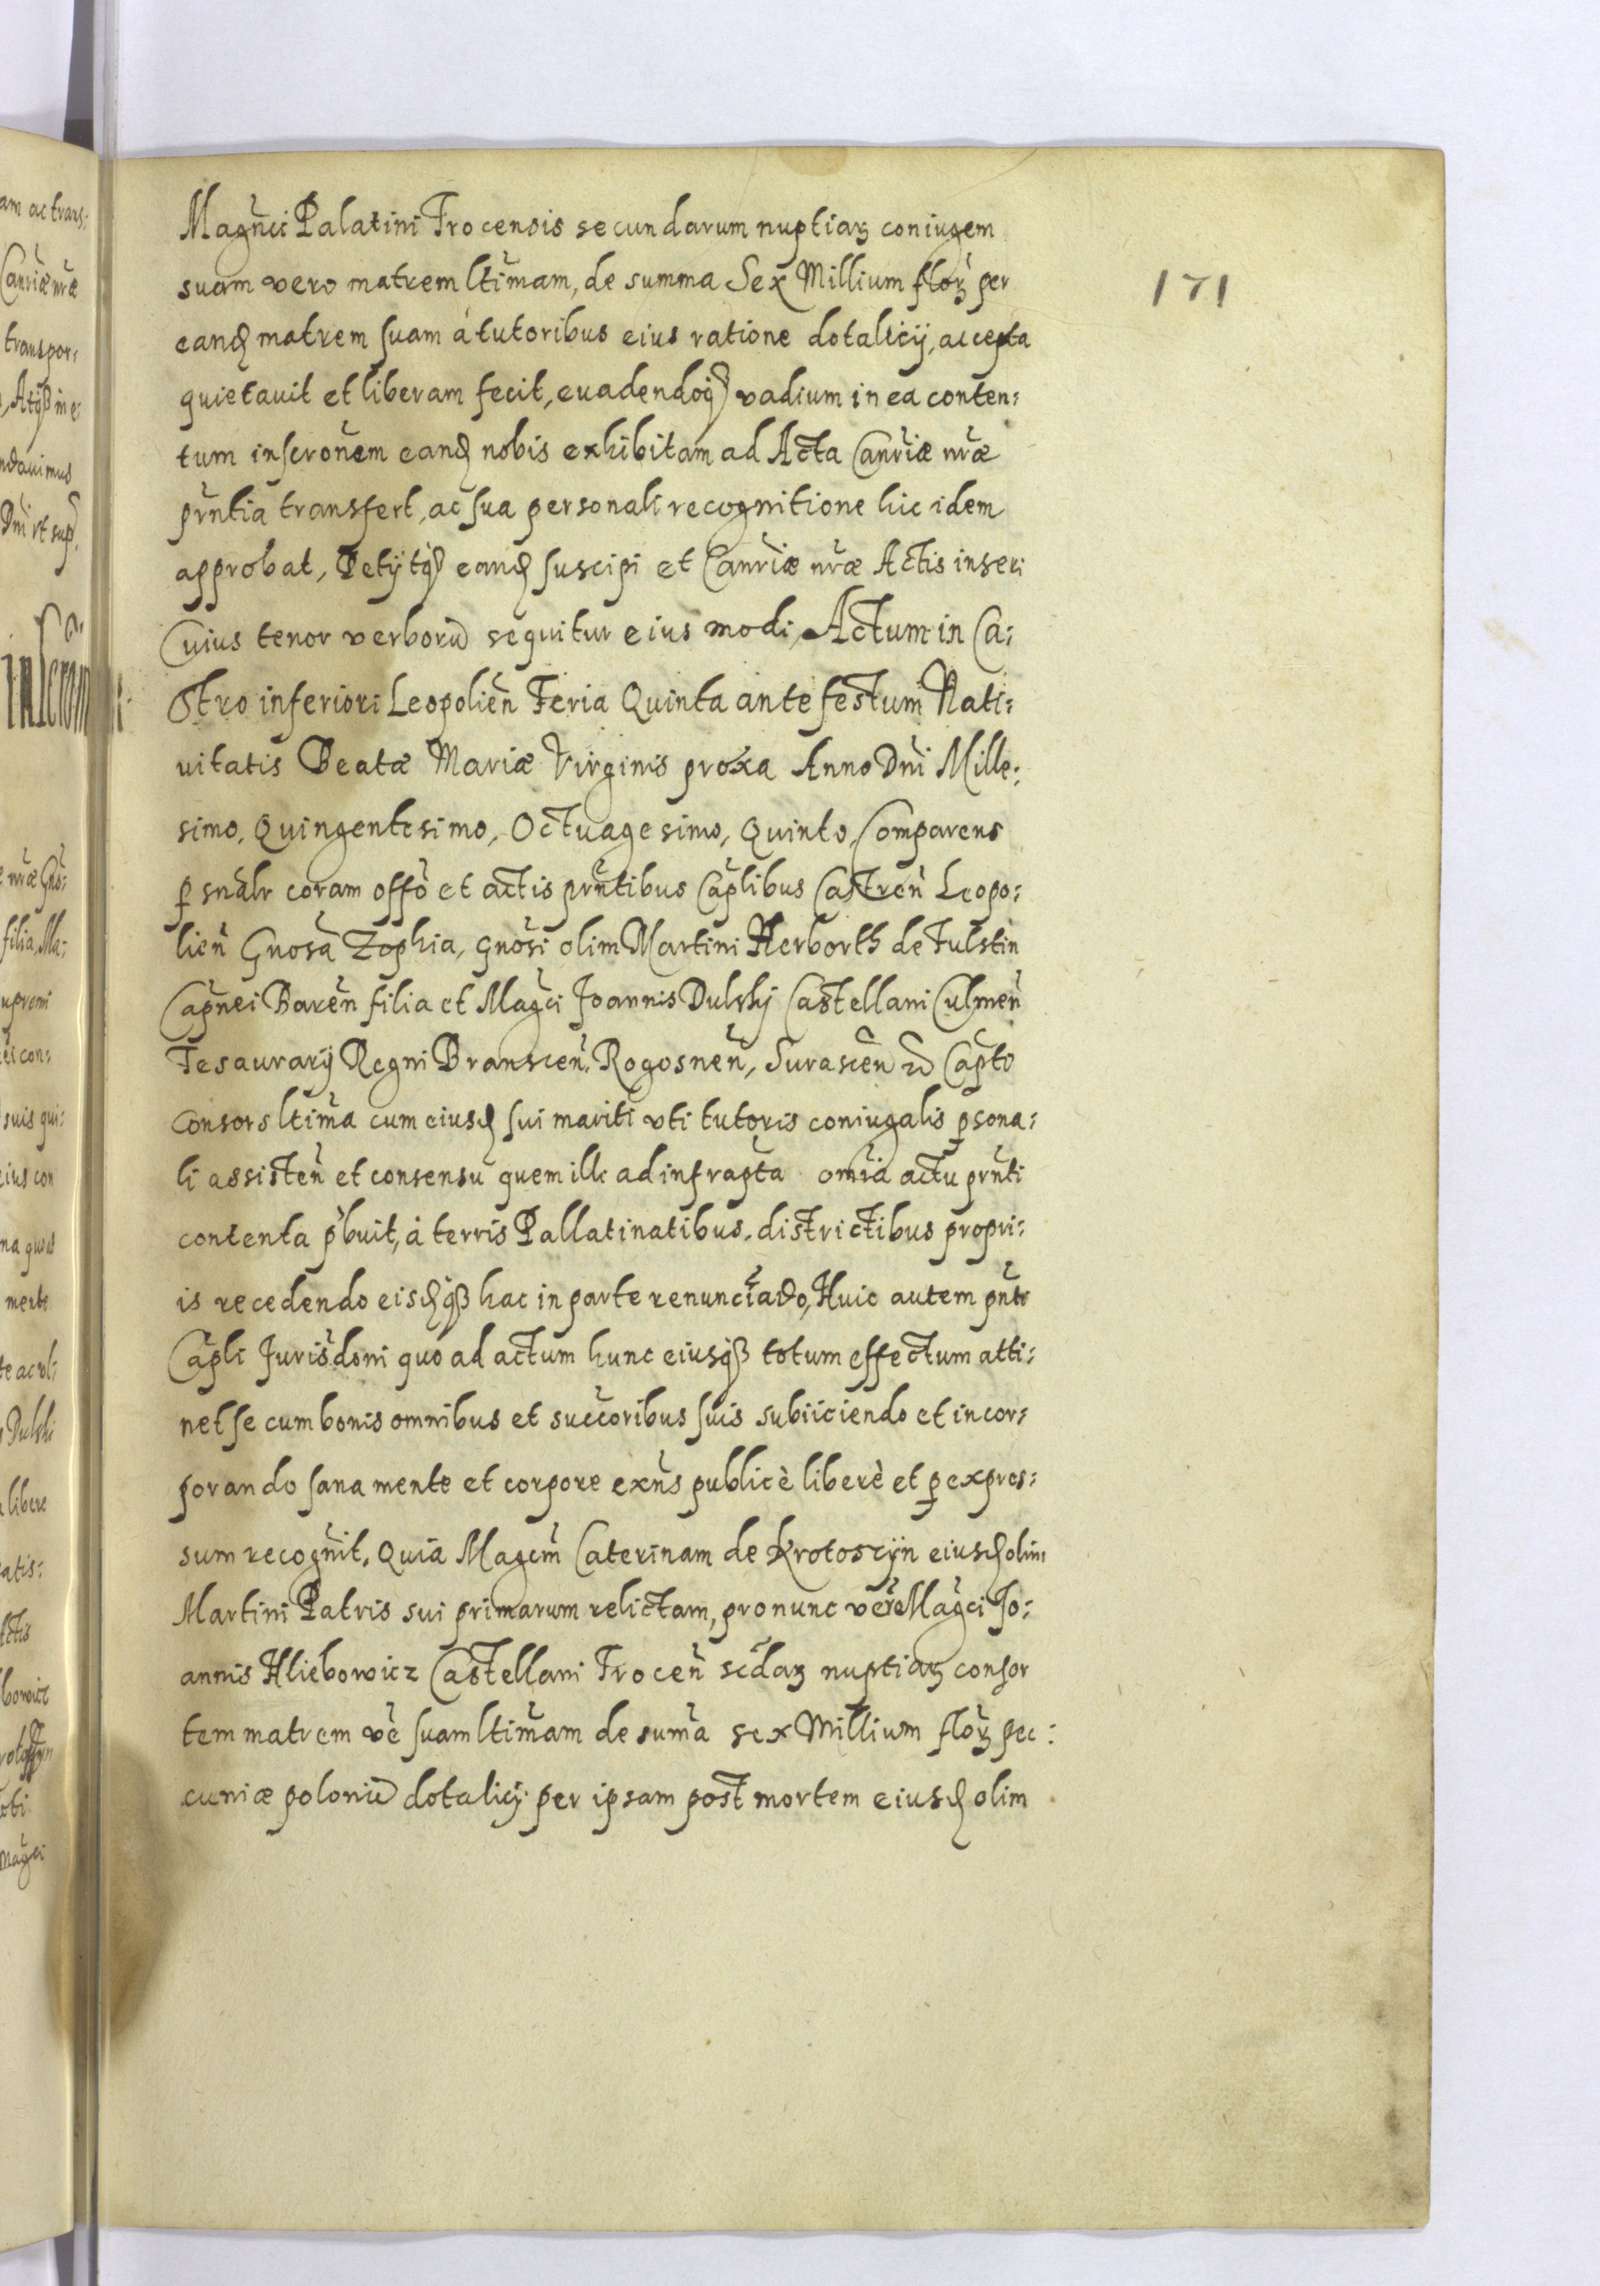 Magnci Palatini Trocensis secundarum nuptiaꝝ coniugem
suam vero matrem ltimam, de summa Sex Millium floꝝ per
171
eandꝫ matrem suam á tutoribus eius ratione dotalicij, accepta
quietauit et liberam fecit, euadendoqꝫ vadium in ea conten:
tum inscronem eandꝫ nobis exhibitam ad Acta Canriæ nræ
prntia transfert, ac sua personali recognitione hic idem
approbat, Petijtqꝫ eandꝫ suscipi et Canriæ nræ Actis inseri
Cuius tenor verborũ sequitur eius modi, Actum in Ca:
stro inferiori Leopolien Feria Quinta ante festum Nati:
uitatis Beatæ Mariæ Virginis proxa Anno Dni Mille:
simo, Quingentesimo, Octuagesimo, Quinto, Comparens
ꝑsnalr coram offo et actis prntibus Caplibus Castren Leopo:
lien Gnosa Zophia, Gnosi olim Martini Herborth de Fulstin
Capnei Baren filia et Magci Joannis Dulskj Castellani Culmen
Tesaurarij Regni Branscen, Rogosnen, Surascen Capto
consors ltima cum eiusdꝫ sui mariti vti tutoris coniugalis ꝑsona:
li assisten et consensu quem illi ad infrapta omia actu prnti
contenta p̃buit, à terris Pallatinatibus, districtibus propri:
is recedendo eisdꝫqꝫ hac in parte renunciado, Huic autem pnte
Capli Jurisdoni quo ad actum hunc eiusqꝫ totum effectum atti:
net se cum bonis omnibus et succoribus suis subiiciendo et incor:
porando sana mente et corpore exns publicè liberè et ꝑ expres:
sum recognit. Quia Magcm Caterinam de Krotoscijn eiusdꝫ olim
Martini Patris sui primarum relictam, pro nunc vero Magci Jo:
annis Hliebowicz Castellani Trocen scdaꝝ nuptiaꝝ consor
tem matrem vẽ suam ltimam de suma sex Millium floꝝ pec:
cuniæ polonic̃ dotalicij per ipsam post mortem eiusdꝫ olim